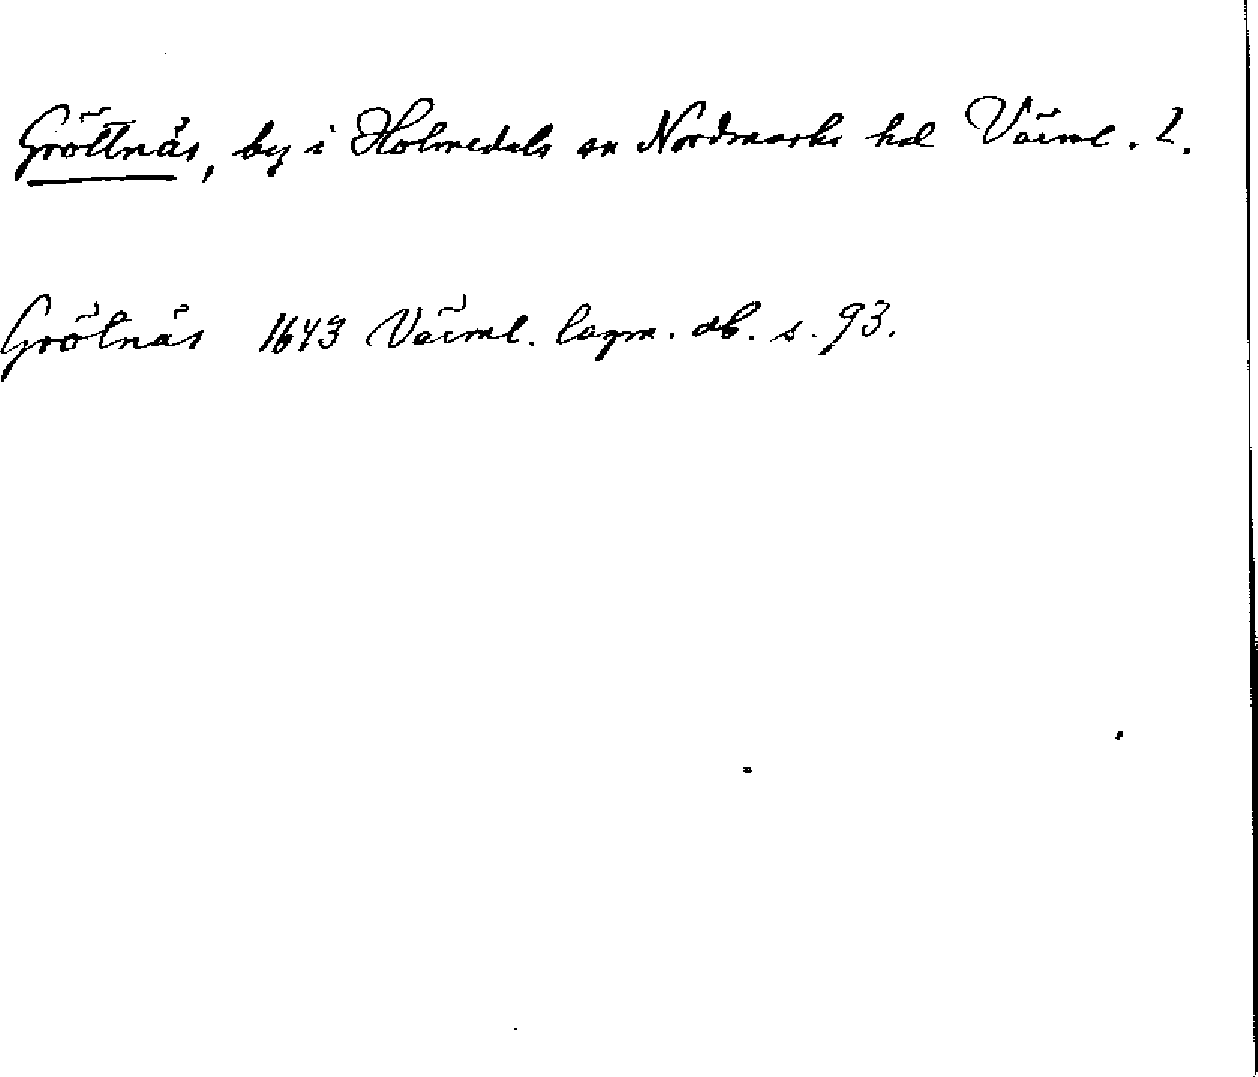 Gröttnäs, by i Holmedals sn Nordmarks hd Värml. l.
Grötnäs 1643 Värml. lagm. db. s. 93.